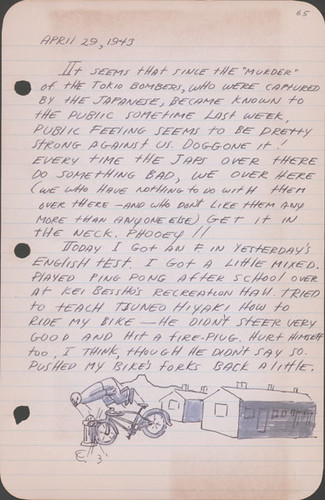 65
APRIL 29, 1943
IT SEEMS THAT SINCE THE "MURDER"
OF THE TOKIO BOMBERS, WHO WERE CAPTURED
BY THE JAPANESE, BECAME KNOWN TO
THE PUBLIC SOMETIME LAST WEEK,
PUBLIC FEELING SEEMS TO BE PRETTY
STRONG AGAINST US. DOGGONE IT!
EVERY TIME THE JAPS OVER THERE
DO SOMETHING BAD, WE OVER HERE
(WE WHO HAVE NOTHING TO DO WITH THEM
OVER THERE - AND WHO DON'T LIKE THEM ANY
MORE THAN ANYONE ELSE) GET IT IN
THE NECK. PHOOEY!!
TODAY I GOT AN F. IN YESTERDAY'S
ENGLISH TEST. I GOT A LITTLE MIXED.
PLAYED PING PONG AFTER SCHOOL OVER
AT KEI BESSHO'S RECREATION HALL. TRIED
TO TEACH TJUNEO HIYAKI HOW TO
RIDE MY BIKE — HE DIDN'T STEER VERY
GOOD AND HIT A FIRE-PLUG. HURT HIMSELF
TOO, I THINK, THOUGH HE DIDN'T SAY SO.
PUSHED MY BIKE'S FORKS BACK A LITTLE.